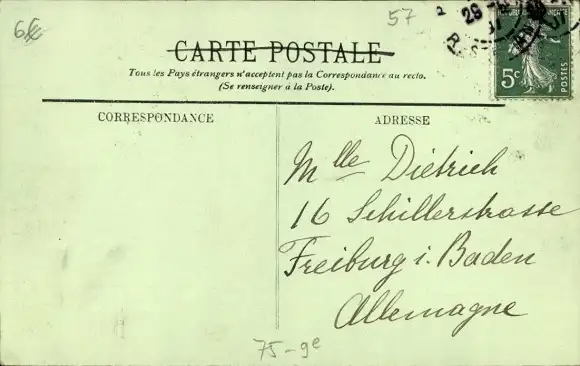 57
CARTE POSTALE
Tous les Pays étrangers n'acceptent pas la Correspondance au recto.
(Se renseigner à la Poste).
CORRESPONDANCE
ADRESSE
5c
POSTES
Mlle Diétrich
16 Schillerstrasse
Freiburg i. Baden
Allemagne
75-9e